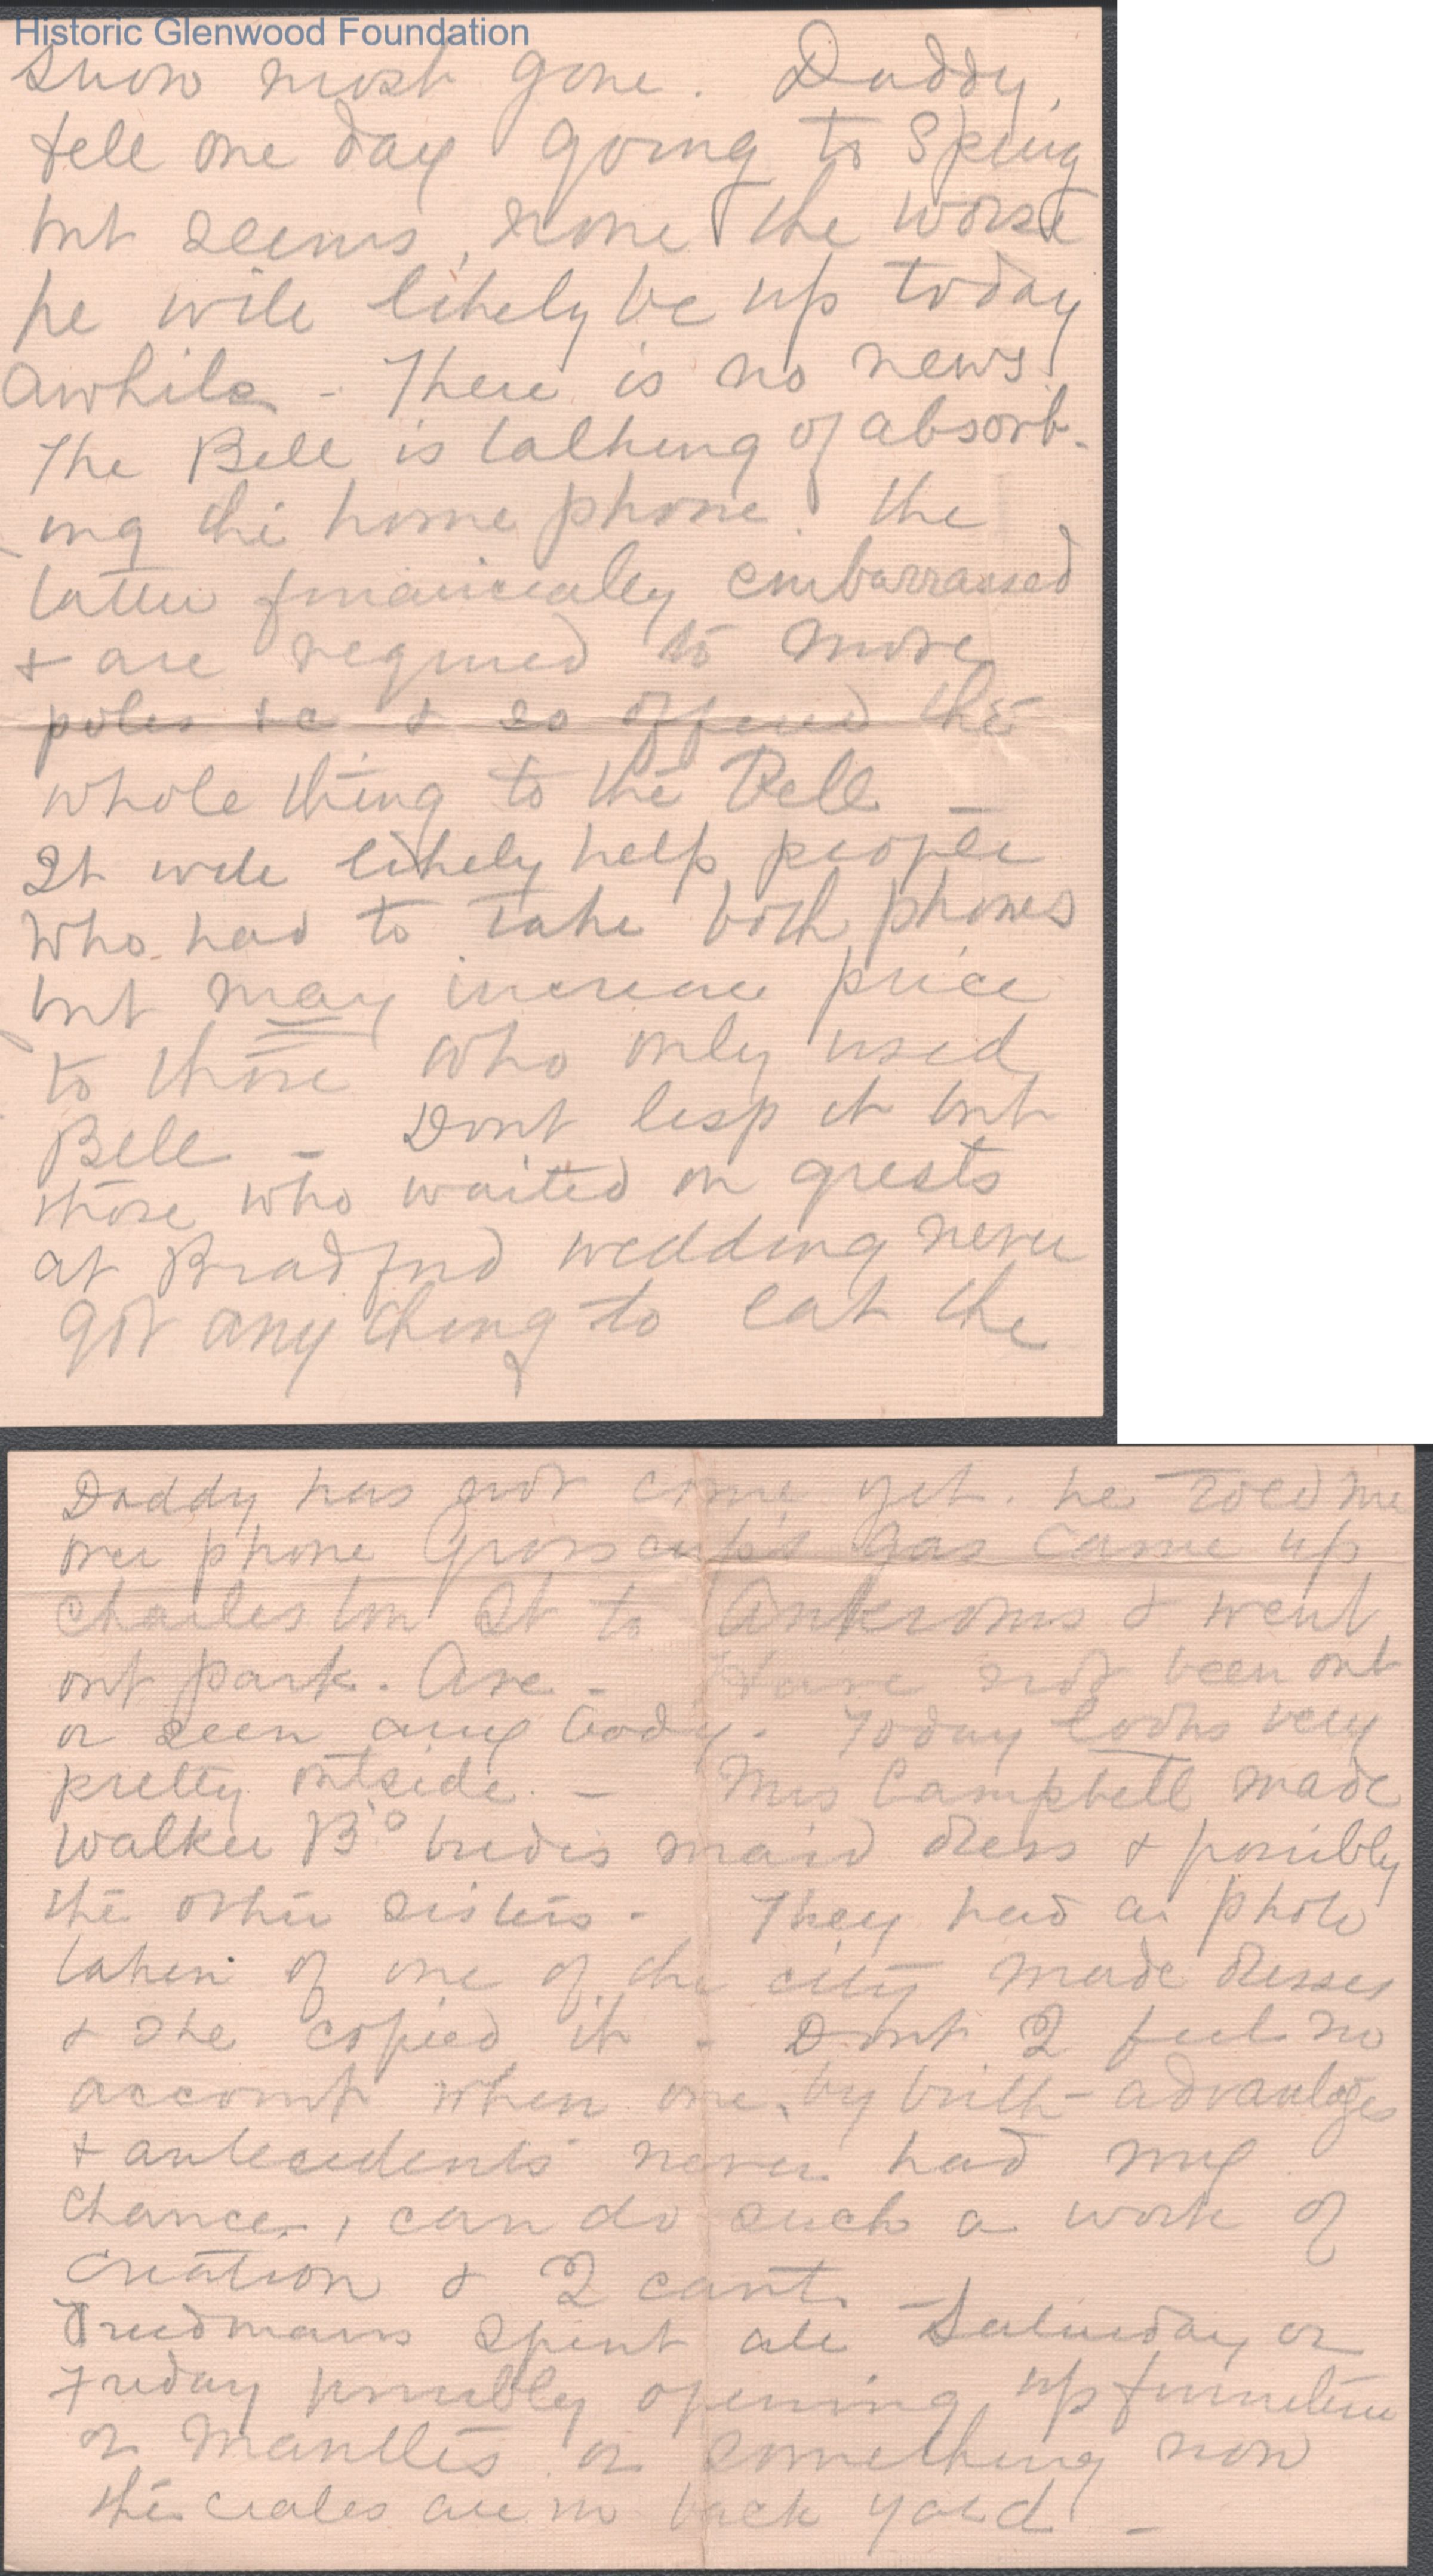 Historic Glenwood Foundation
snow most gone. Daddy,
fell one day going to Spring
but seems, none the worse
he will likely be up today
awhile - There is no news.
The Bell is talking of absorb-
ing the home phone. the
latter financially embarrassed
& are required to move
poles &c & so offered the
whole thing to the Bell -
It will likely help people
who had to take both phones
but may increase price
to those who only used
Bell - Dont lisp it but
those who waited on guests
at Bradford wedding never
got any thing to eat the
Daddy has not come yet. he told me
over phone Grosscup's gas came up
Charleston St to Ankroms & went
out park. Ave - Have not been out
or seen any body. Today looks very
pretty outside. - Mrs Campbell made
Walker B's brides maid dress & possibly
the other sisters - They had a photo
taken of one of the city made dresses
& she copied it - Dont I feel no
account when one, by birth - advantages
& antecedents never had my
chance, can do such a work of
creation & I cant. -
spent all Saturday or
Friday possibly opening up furniture
or mantles or something now
the crates are in back yard -